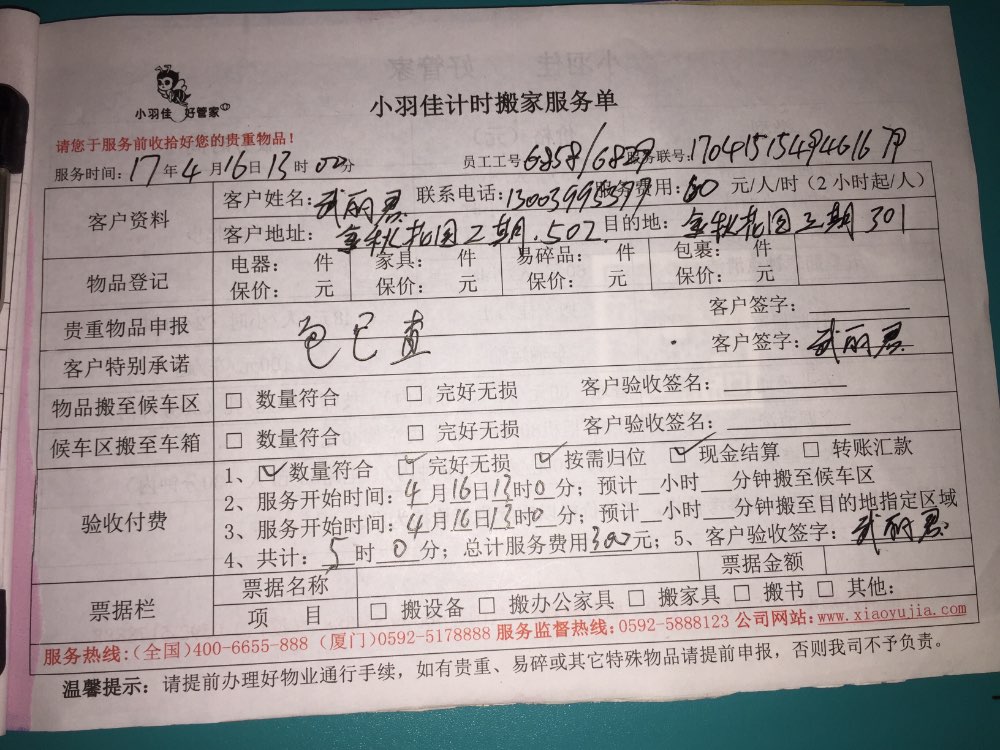 小羽佳 好管家
小羽佳计时搬家服务单
请您于服务前收拾好您的贵重物品！
服务时间：17年4月16日13时00分 员工工号6858/68 服务联号：17041515494616
客户资料 客户姓名：武丽君 联系电话：13003995377 服务费用：60 元/人/时（2小时起/人）
客户地址：金秋花园二期.502. 目的地：金秋花园三期 301
物品登记 电器： 件 家具： 件 易碎品： 件 包裹： 件
保价： 元 保价： 元 保价： 元 保价： 元
贵重物品申报 客户签字：
包已查
客户特别承诺 客户签字：武丽君
物品搬至候车区 □ 数量符合 □ 完好无损 客户验收签名：
候车区搬至车箱 □ 数量符合 □ 完好无损 客户验收签名：
验收付费 1、☑数量符合 ☑完好无损 ☑按需归位 ☑现金结算 □转账汇款
2、服务开始时间：4月16日13时0分；预计__小时___分钟搬至候车区
3、服务开始时间：4月16日13时0分；预计__小时___分钟搬至目的地指定区域
4、共计：5时0分；总计服务费用300元；5、客户验收签字：武丽君
票据栏 票据名称 票据金额
项 目 □ 搬设备 □ 搬办公家具 □ 搬家具 □ 搬书 □ 其他：
服务热线：（全国）400-6655-888（厦门）0592-5178888 服务监督热线：0592-5888123 公司网站：www.xiaoyujia.com
温馨提示：请提前办理好物业通行手续，如有贵重、易碎或其它特殊物品请提前申报，否则我司不予负责。